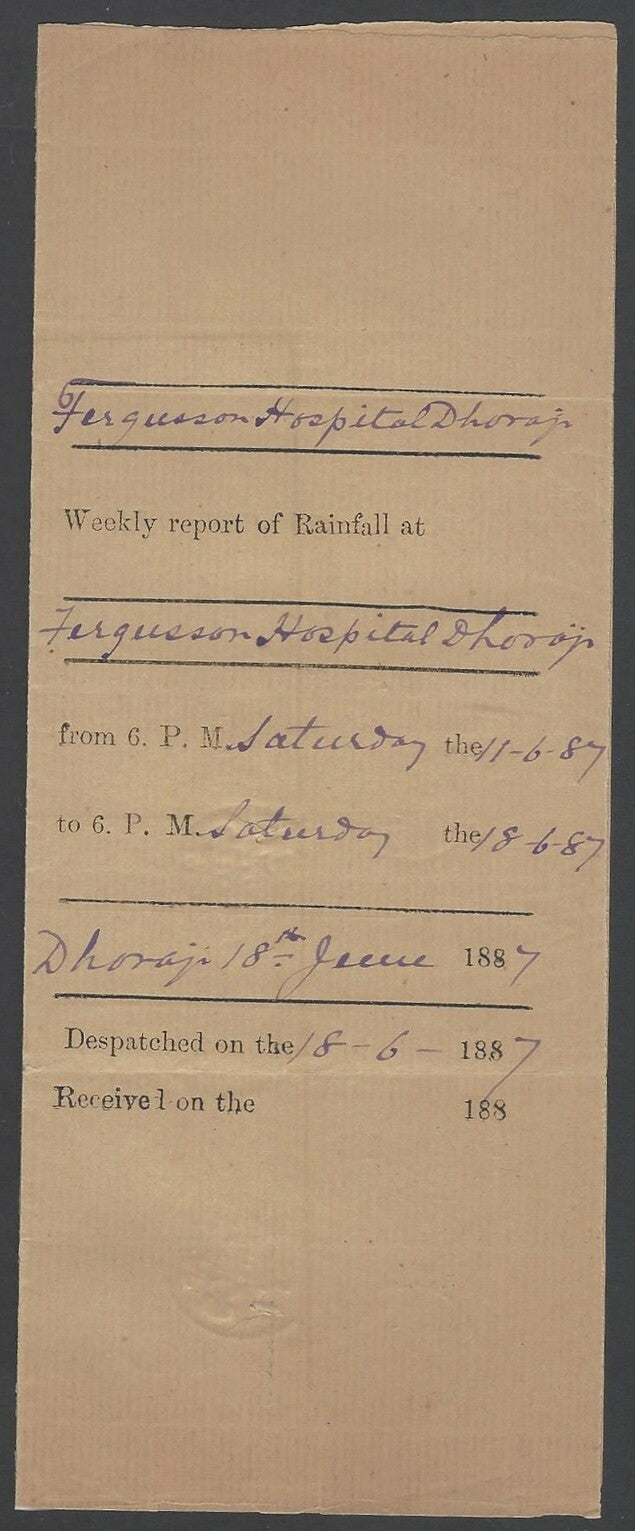 Fergusson Hospital Dhoraji
Weekly report of Rainfall at
Fergusson Hospital Dhoraji
from 6. P. M. Saturday the 11-6-87
to 6. P. M. Saturday the 18-6-87
Dhoraji 18th June 1887
Despatched on the 18-6-1887
Received on the 188